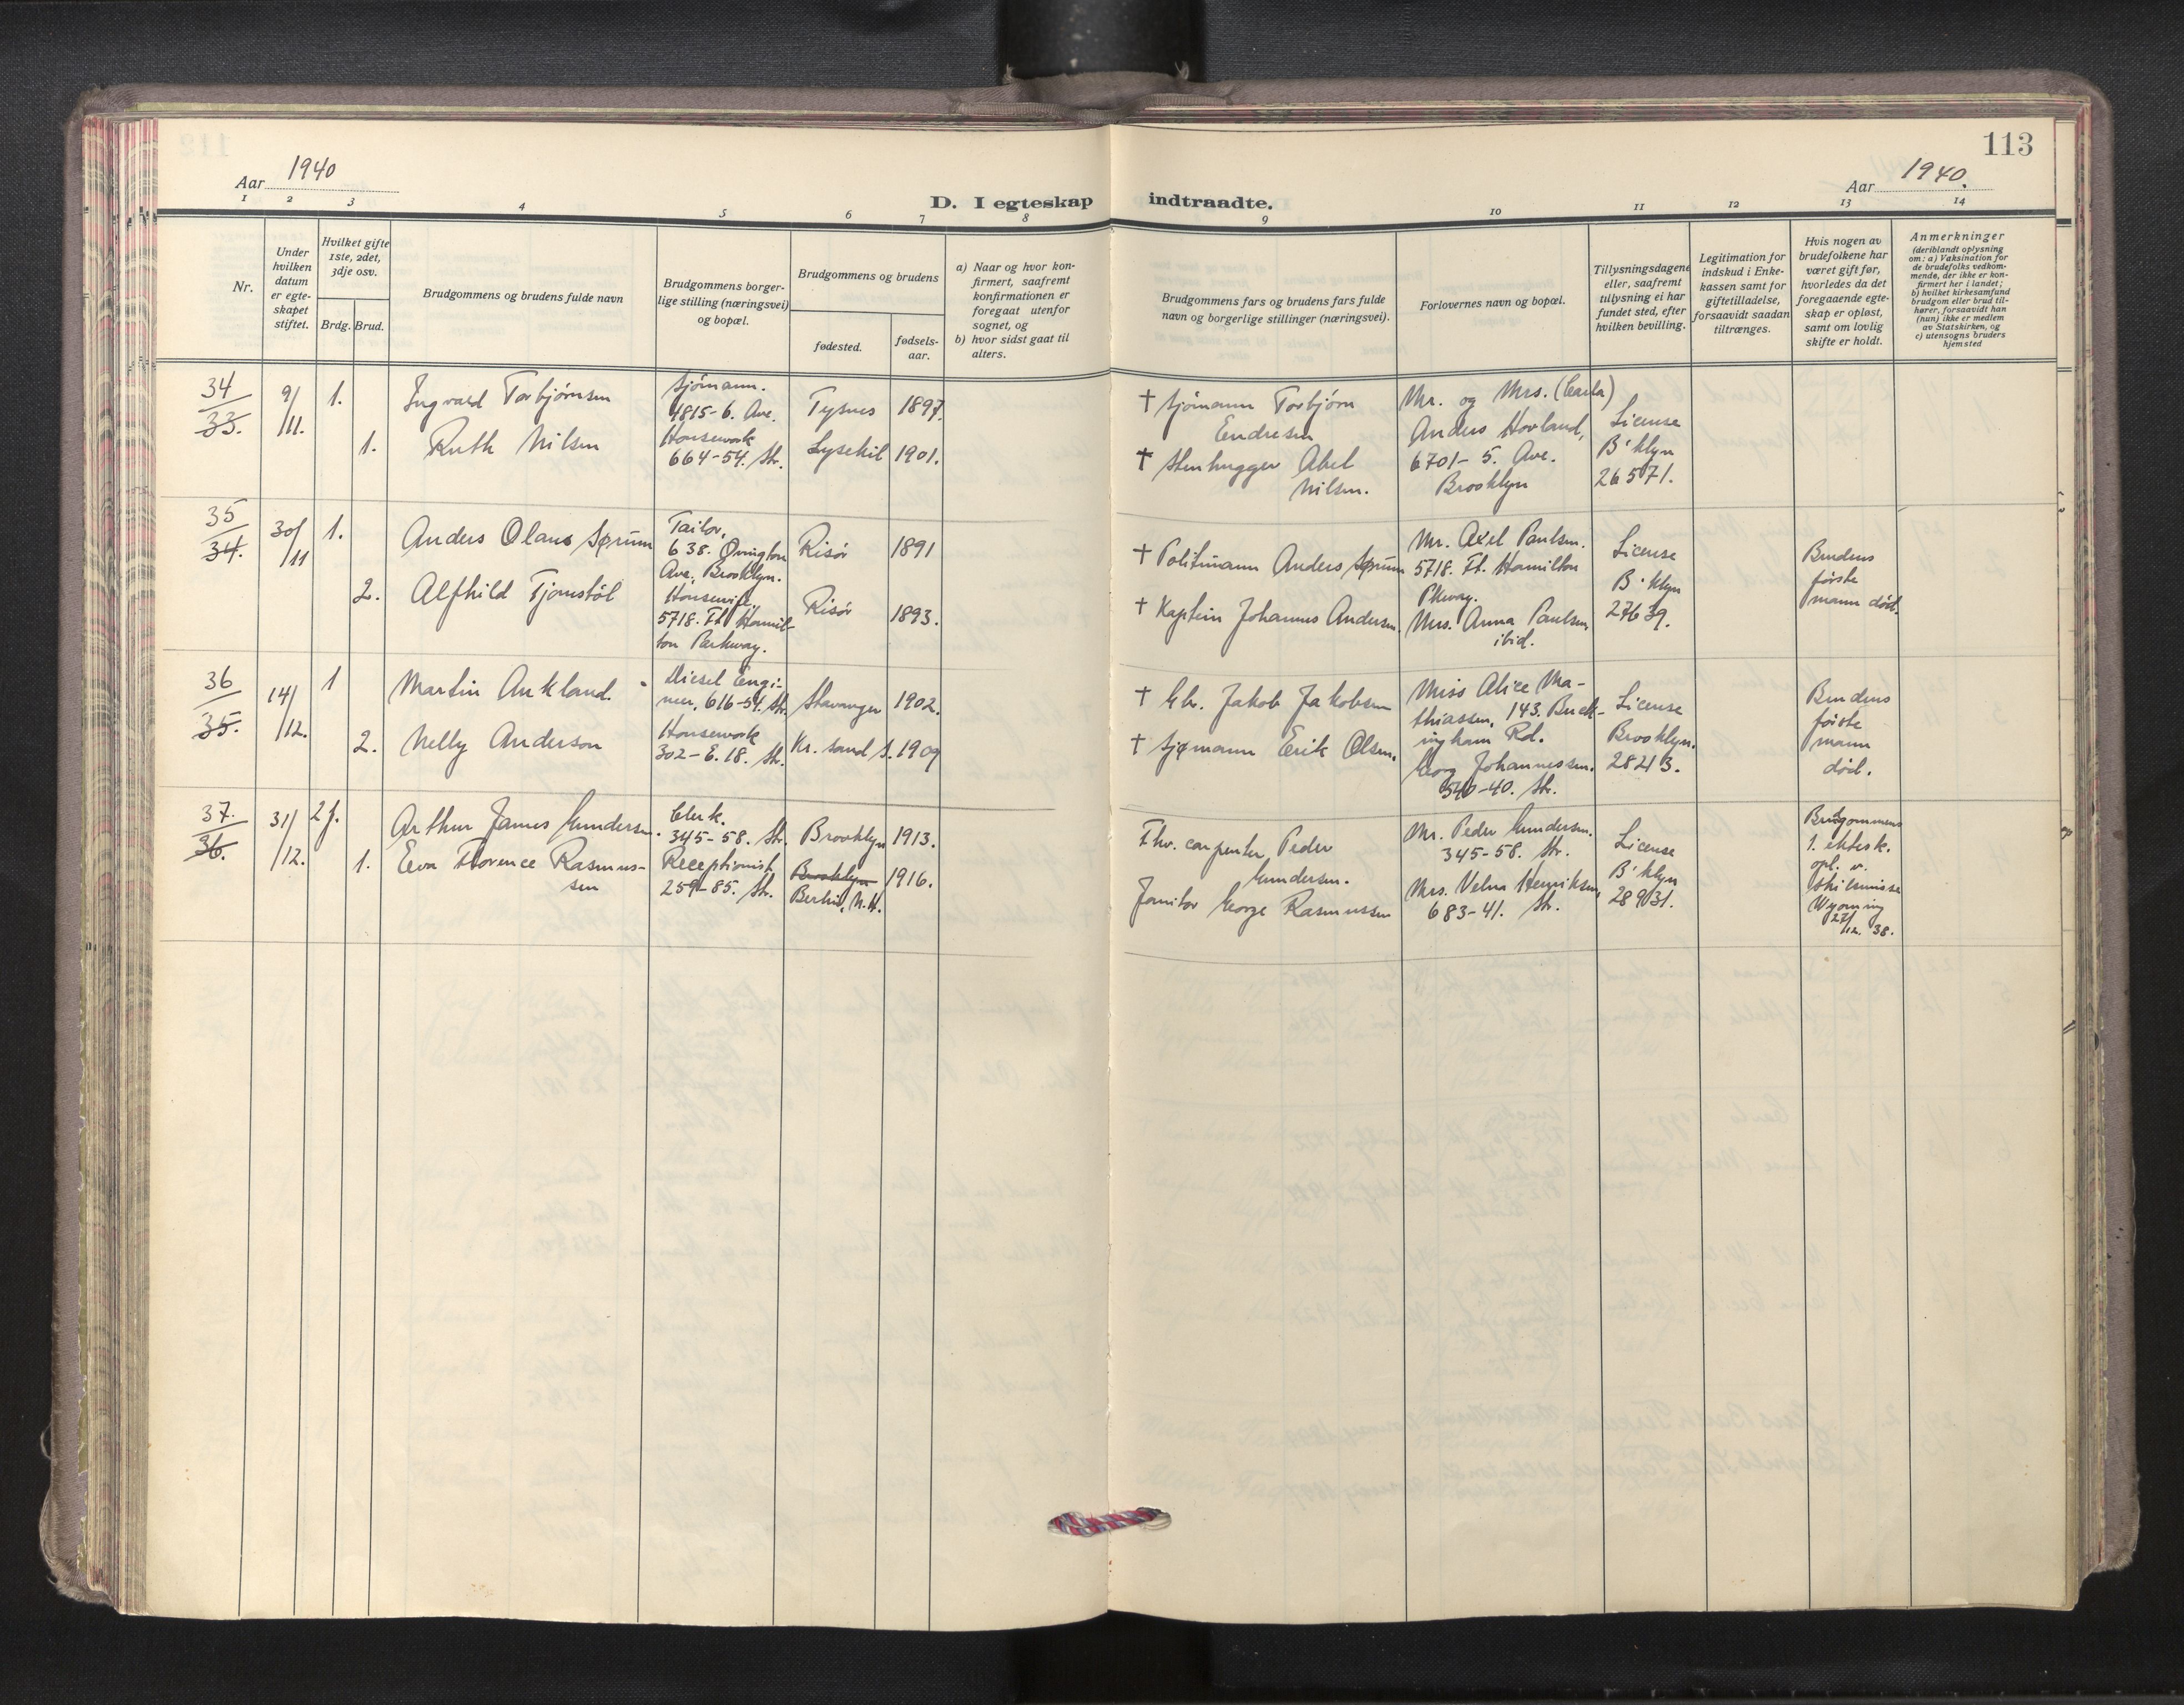 113
Aar 1940
Aar 1940.
D. I egteskap indtraadte.
1 2 3 4 5 6 7 8 9 10 11 12 13 14
Nr.
Under
hvilken
datum
er egte-
skapet
stiftet.
Hvilket gifte
1ste, 2det,
3dje osv.
Brdg. Brud.
Brudgommens og brudens fulde navn
Brudgommens borger-
lige stilling (næringsvei)
og bopæl.
Brudgommens og brudens
fødested.
fødsels-
aar.
a) Naar og hvor kon-
firmert, saafremt
konfirmationen er
foregaat utenfor
sognet, og
b) hvor sidst gaat til
alters.
Brudgommens fars og brudens fars fulde
navn og borgerlige stillinger (næringsvei).
Forlovernes navn og bopæl.
Tillysningsdagene
eller, saafremt
tillysning ei har
fundet sted, efter
hvilken bevilling.
Legitimation for
indskud i Enke-
kassen samt for
giftetilladelse,
forsaavidt saadan
tiltrænges.
Hvis nogen av
brudefolkene har
været gift før,
hvorledes da det
foregaaende egte-
skap er opløst,
samt om lovlig
skifte er holdt.
Anmerkninger
(deriblandt oplysning
om: a) Vaksination for
de brudefolks vedkom-
mende, der ikke er kon-
firmert her i landet;
b) hvilket kirkesamfund
brudgom eller brud til-
hører, forsaavidt han
(hun) ikke er medlem
av Statskirken, og
c) utensogns bruders
hjemsted
34
33.
9/
/11.
1.
Ingvard Torbjørnsen
Sjømann.
4815-6. Ave.
Tysnes
1897.
1.
Ruth Nilsen
Housework
664-54. Str.
Lysekil
1901.
† Sjømann Torbjørn
Endresen
† Stenhugger Abel
Nilsen.
Mr. og Mrs. (Carla)
Anders Hovland,
6701- 5. Ave.
Brooklyn
License
B'klyn
26571.
35
34.
30/
/11
1.
Anders Olaus Sørum
Tailor,
638. Ovington
Ave, Brooklyn.
Risör
1891
2.
Alfhild Tjomstöl
Housewife.
5718. Ft Hamil-
ton Parkway.
Risör
1893.
† Politimann Anders Sørum
† Kaptein Johannes Andersen.
Mr. Axel Paulsen.
5718. Ft. Hamilton
Pkway.
Mrs. Anna Paulsen,
ibid.
License
B'klyn
27639.
Brudens
første
mann död.
36
35.
14/
/12.
1
Martin Aukland.
Diesel Engi-
neer, 616-54. Str.
Stavanger
1902.
2.
Nelly Anderson
Housework
302-E. 18. Str.
Kr. sand S.
1909
† Gbr. Jakob Jakobsen
† Sjømann Erik Olsen.
Miss Alice Ma-
thiassen, 143. Buck-
ingham Rd.
Georg Johannessen.
540-40. Str.
License
Brooklyn.
28213.
Brudens
første
mann
död.
37.
36.
31/
/12.
2 f.
Arthur James Gundersen.
Clerk.
345-58. Str.
Brooklyn
1913.
1.
Eva Florence Rasmus-
sen
Receptionist
259-85. Str.
Brooklyn
Berlin, N.H.
1916.
Fhv. carpenter Peder
Gundersen.
Janitor George Rasmussen
Mr. Peder Gundersen.
345-58. Str.
Mrs. Velma Henriksen,
683-41. Str.
License
B'klyn
28931.
Brudgommens
1. ektesk.
opl. v.
skilsmisse
Wyoming
27/
/12. 38.